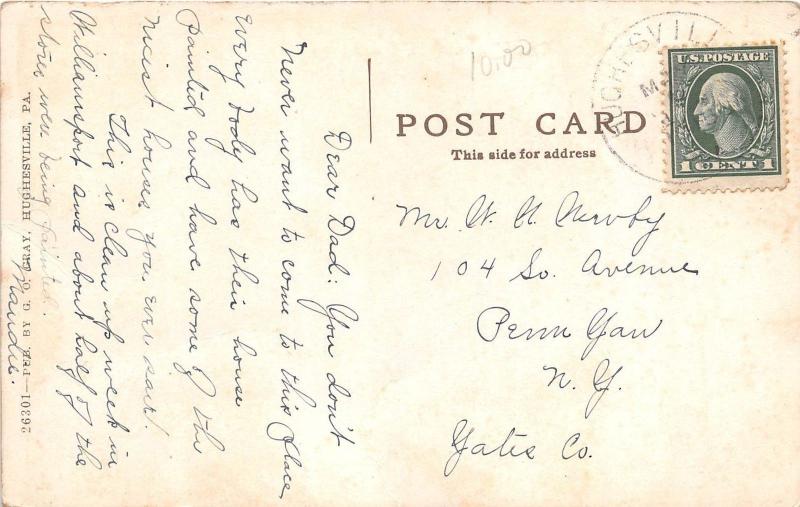 Dear Dad: You don't
Never want to come to this place
Every body has their house
Painted and have some of the
nicest houses you ever saw!
This is clean up week in
Williamsport and about half of the
stores were being painted.
Maude.
26301—PUB. BY G. O. GRAY, HUGHESVILLE, PA.
10.00
POST CARD
This side for address
HUGHESVILL
U.S. POSTAGE
1 CENT 1
Mr. W. H. Newby
104 So. Avenue
Penn Yan
N. Y.
Yates Co.